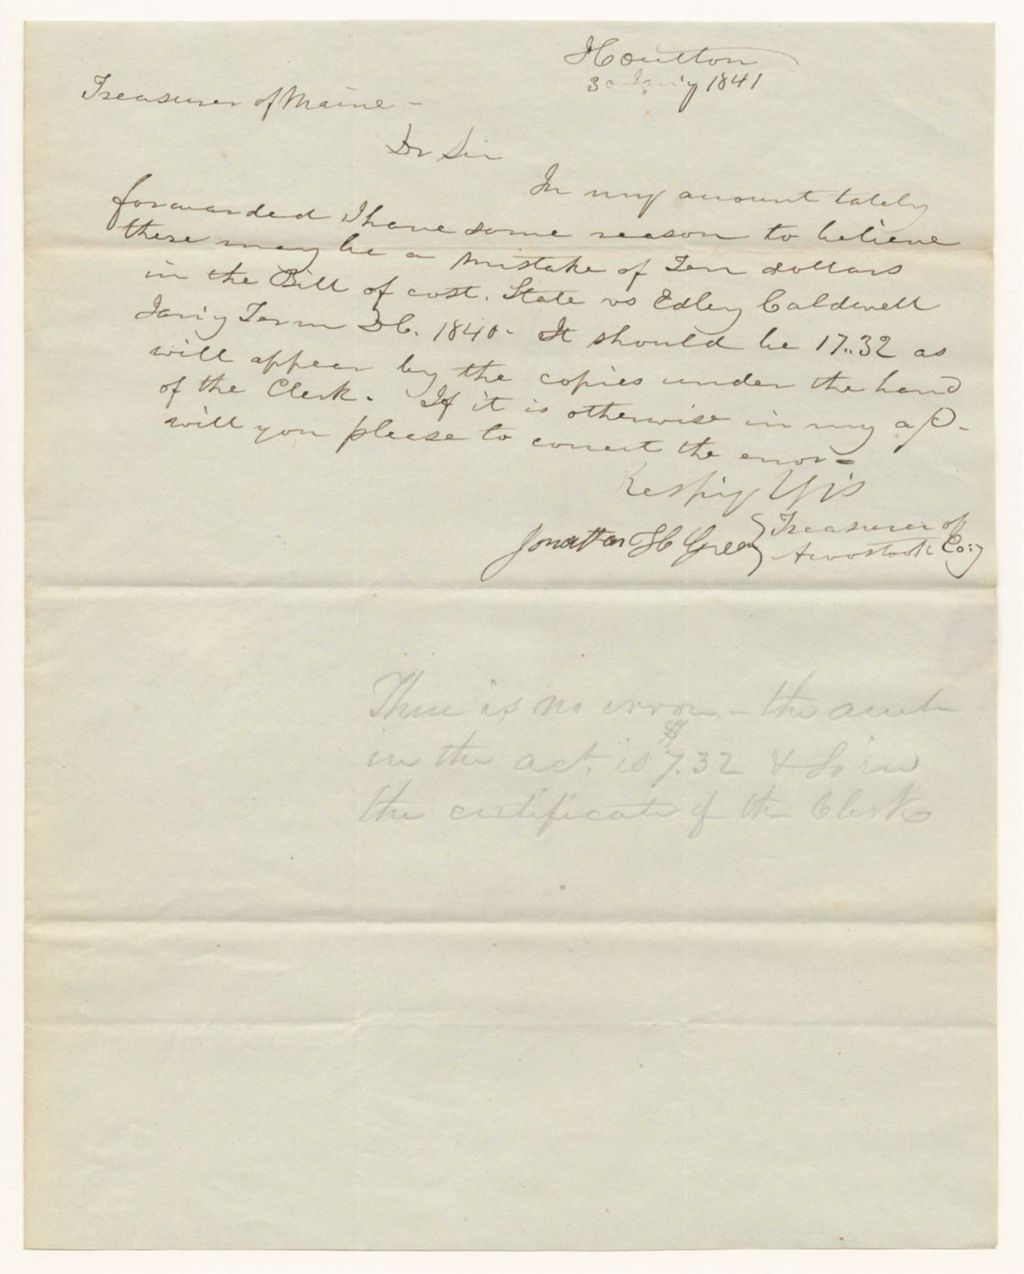 Houlton
30 Jan'y 1841
Treasurer of Maine -
Dr Sir
In my account lately
forwarded I have some reason to believe
there may be a mistake of Ten dollars
in the Bill of cost. State vs Edley Caldwell
Jan'y Term D.C. 1840 - It should be 17..32 as
will appear by the copies under the hand
of the Clerk. If it is otherwise in my a/c -
will you please to correct the error =
Resp'y Y'rs
Jonathan H Green } Treasurer of
Aroostook Co:y
There is no error - the am't
in the act. is $7.32 & So in
the certificate of the Clerk